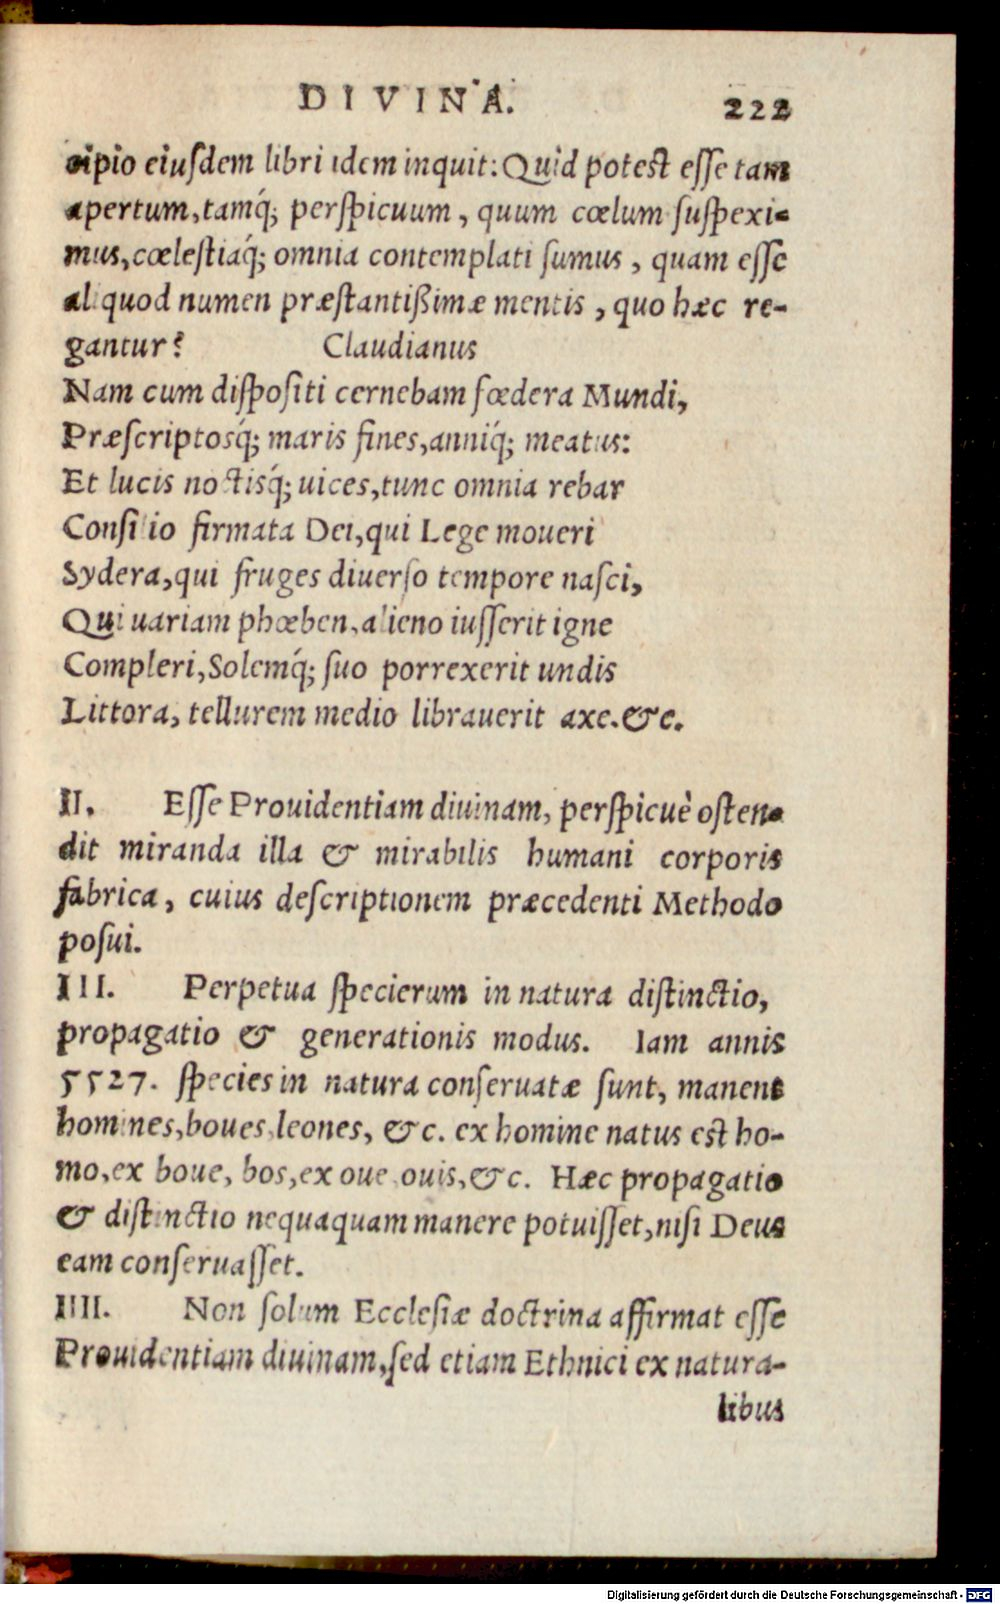 DIVINA. 222
cipio eiusdem libri idem inquit: Quid potest esse tam
apertum, tamq́; perspicuum, quum cœlum suspexi-
mus, cœlestiaq́; omnia contemplati sumus, quam esse
aliquod numen præstantißimæ mentis, quo hæc re-
gantur? Claudianus
Nam cum dispositi cernebam fœdera Mundi,
Præscriptosq́; maris fines, anniq́; meatus:
Et lucis noctisq́; uices, tunc omnia rebar
Consilio firmata Dei, qui Lege moueri
Sydera, qui fruges diuerso tempore nasci,
Qui uariam phœben, alieno iusserit igne
Compleri, Solemq́; suo porrexerit undis
Littora, tellurem medio librauerit axe. &c.
II. Esse Prouidentiam diuinam, perspicuè osten-
dit miranda illa & mirabilis humani corporis
fabrica, cuius descriptionem præcedenti Methodo
posui.
III. Perpetua specierum in natura distinctio,
propagatio & generationis modus. Iam annis
5527. species in natura conseruatæ sunt, manent
homines, boues, leones, &c. ex homine natus est ho-
mo, ex boue, bos, ex oue ouis, &c. Hæc propagatio
& distinctio nequaquam manere potuisset, nisi Deus
eam conseruasset.
IIII. Non solum Ecclesiæ doctrina affirmat esse
Prouidentiam diuinam, sed etiam Ethnici ex natura-
libus
Digitalisierung gefördert durch die Deutsche Forschungsgemeinschaft - DFG